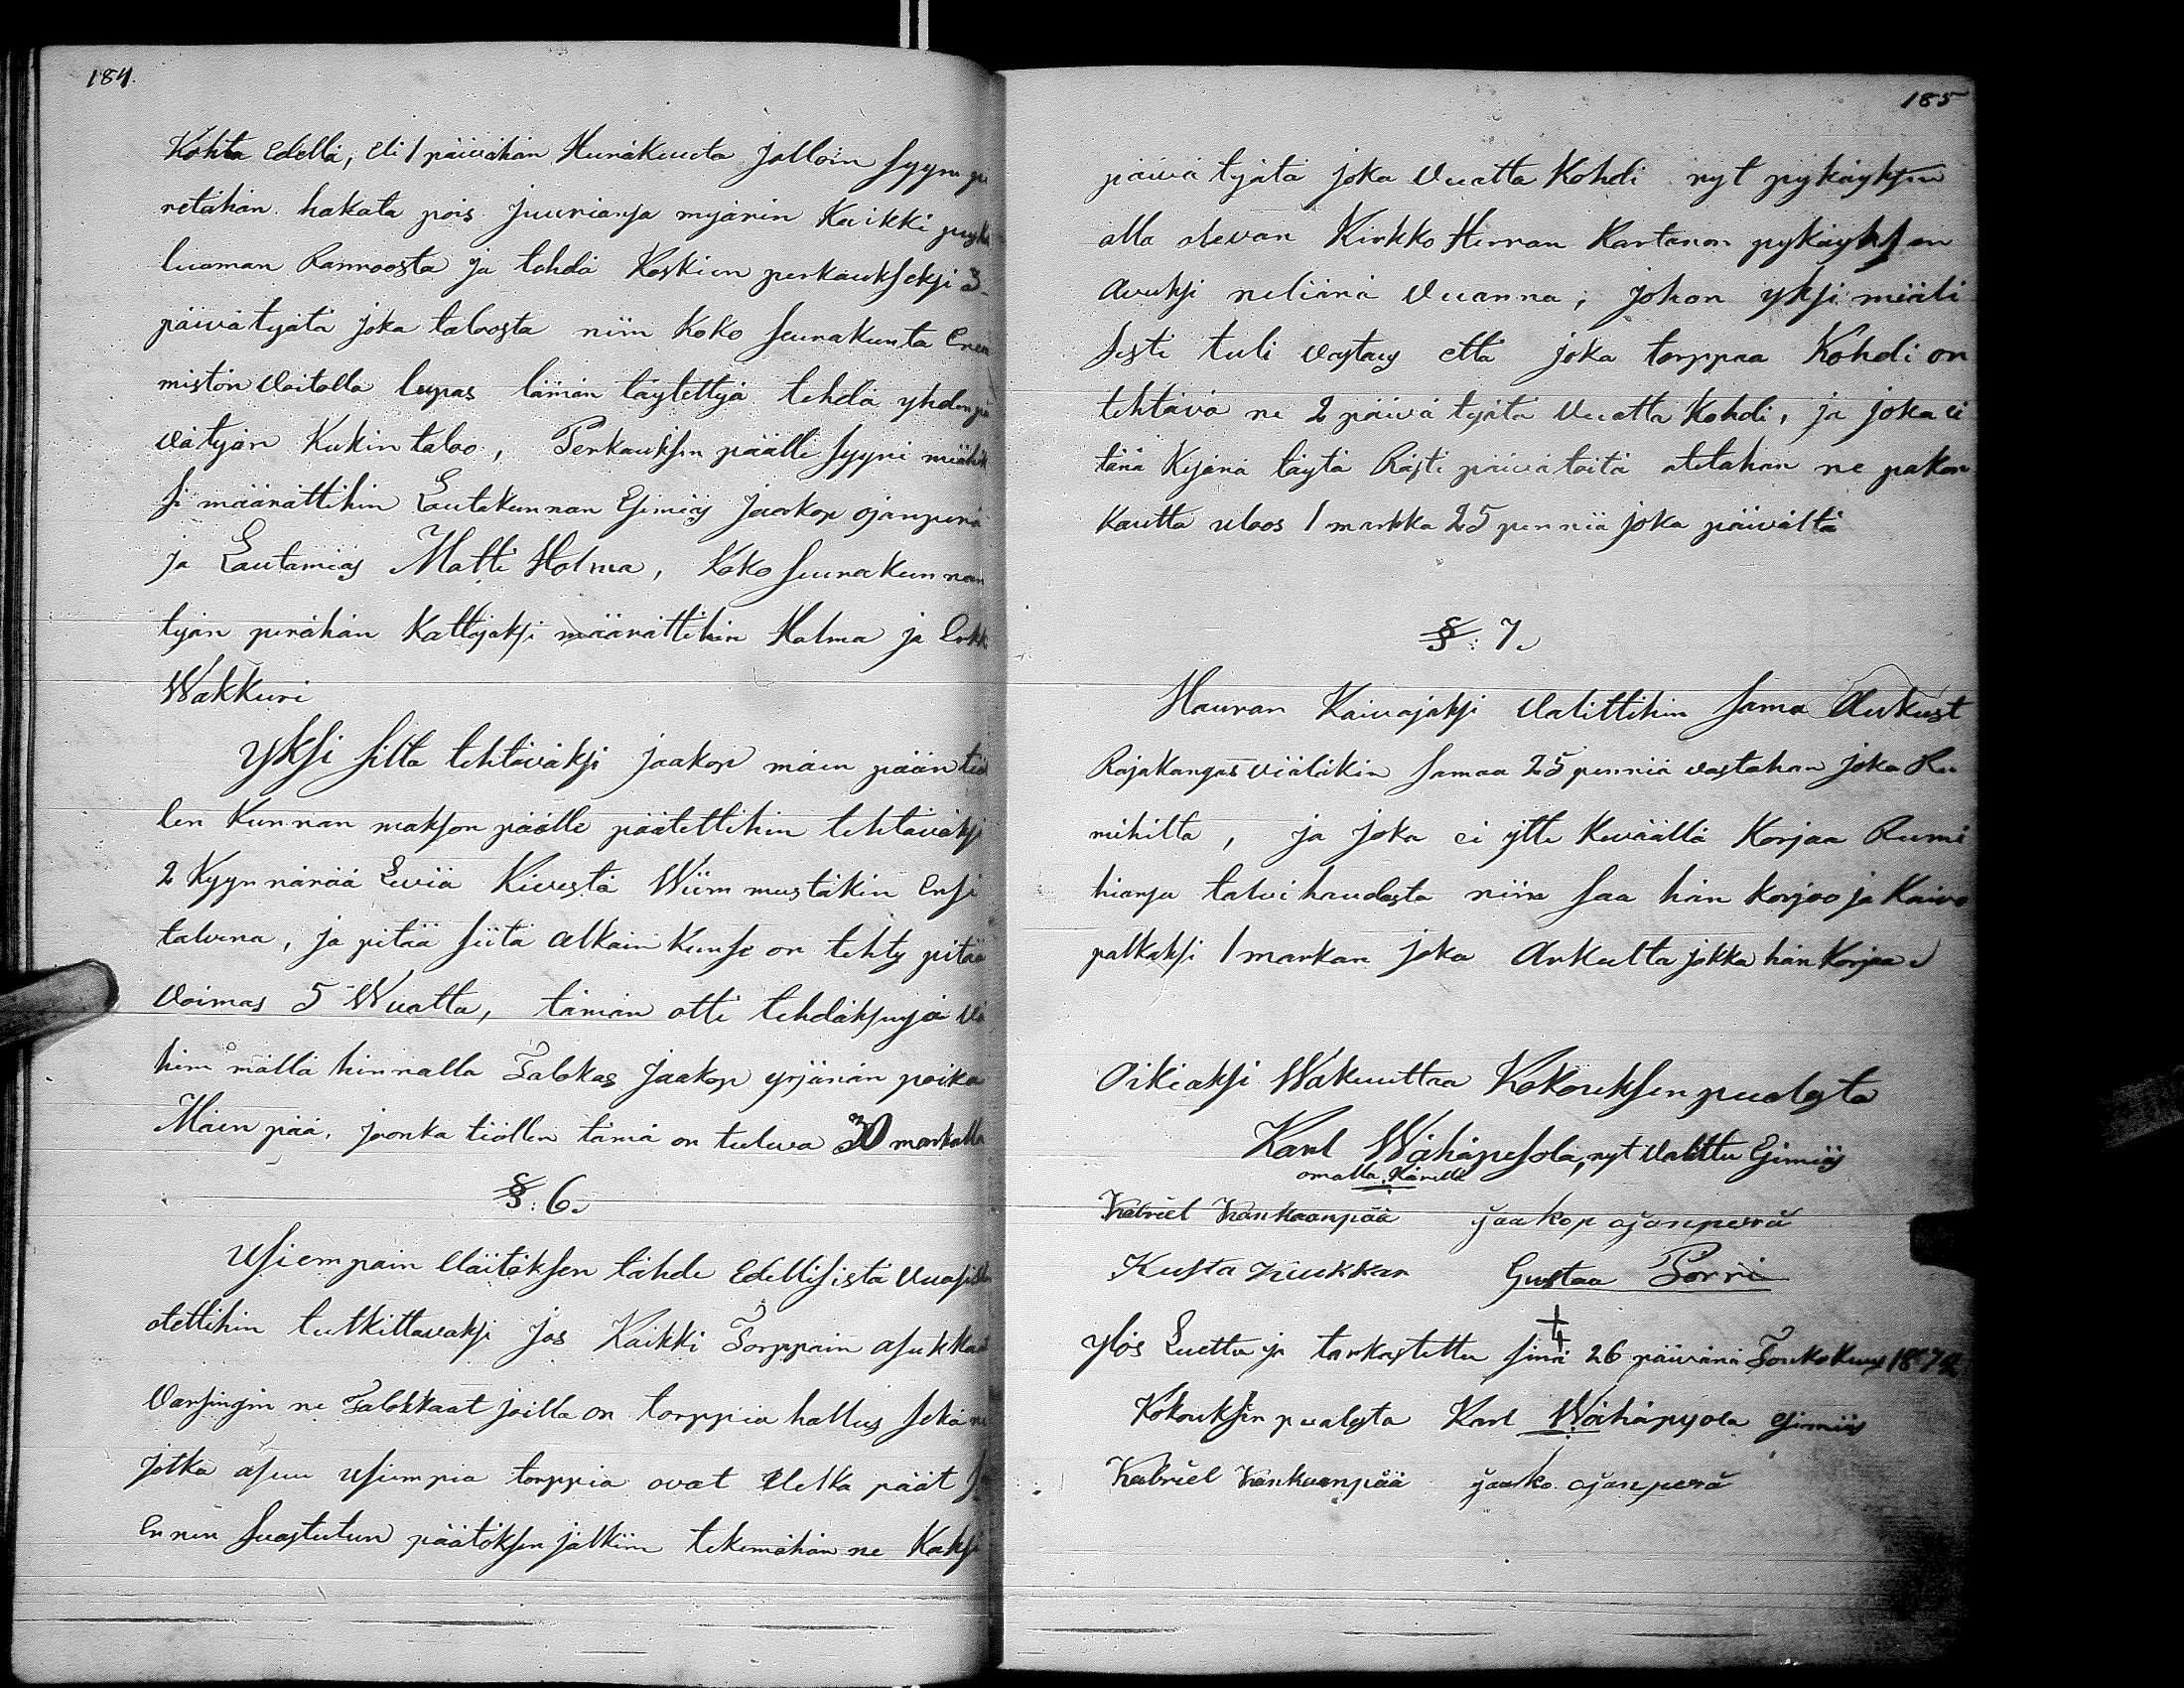 184.
Kohta edellä, eli 1 päivähän Hunäkuuta jolloin syyni
retähän hakata pois juurianja myärin Kaikki
luoman Rannoosta ja tehdä Koskien perkaukseksi 3
päivätyätä joka taloosta niin Koko seurakunta
mistön voitolla lupas tämän täytettyä tehdä yhden
vätyän Kukin taloo, Perkauksen päälle syyni
si määrättihin Lautakunnan Esimiäs Jaakop ojanperä
ja Lautamiäs Matti Holma, Koko seurakunnan
tyän perähän Kattojaksi määrättihin Holma ja Erkk
Wakkuri
Yksi silta tehtäväksi Jaakop mäen pään
len Kunnan makson päälle päätettihin tehtäväksi
2 Kyynnärää Leviä Kivestä Wiimmustäkin Ensi
talvena, ja pitää siitä alkain Kunse on tehty pitää
voimas 5 Wuatta, tämän otti tehdäksensä
himmällä hinnalla Talokas Jaakop yrjänän poika
Mäenpää, jonka tiällen tämä on tuleva 30 markalla
§: 6.
Usiempain Väitöksen tähde Edellisistä
otettihin tutkittavaksi jos Kaikki Torppain asukkaat
Varsingin ne Talokkaat joilla on torppia hallus sekä ne
jotka asuu usiempia torppia ovat Velka päät
Ennen suastutun päätöksen jälkiin tekemähän ne Kaksi
185
päivä tyätä joka Vuatta Kohdi nyt pykäyksen
alla olevan Kirkko Herran Kartanon pykäyksen
Avuksi neliänä Vuanna, johon yksi miäli
sesti tuli vastaus että joka torppaa Kohdi on
tehtävä ne 2 päivä tyätä Vuatta Kohdi, ja joka ei
tänä Kesänä täytä Rästi päivätöitä otetahan ne pakon
Kautta uloos 1 markka 25 penniä joka päivältä
§: 7.
Hauran Kaivajaksi Valittihin sama Aukust
Rajakangas viäläkin samaa 25 penniä vastahan joka Ru
mihilta, ja joka ei itte Keväällä Korjaa Rumi
hiansa talvihaudasta niin saa hän korjoo ja Kaivo
palkaksi 1 markan joka Arkulta jokka hän Korjaa
Oikiaksi Wakuuttaa Kokouksen puolesta
Karl Wähäpesola, nyt Valittu Esimiäs
omalla Känellä
Kabriel Kankaanpää Jaakop ojanperä
Kusta Gustaa Porri
ylös Luettu ja tarkastettu sinä 26 päivänä Toukokuus 1872
Kokouksen puolesta Karl Wähäpesola Esimiäs
Kabriel Kankaanpää Jaako. ojanperä